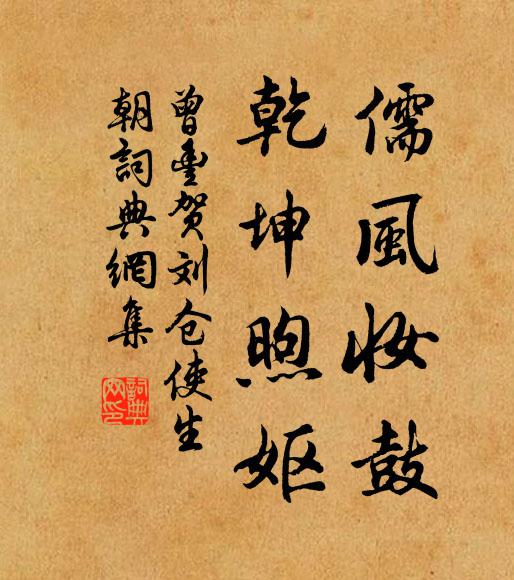 儒風妆鼓
乾坤煦妪
曾豊贺刘仓使生
朝詞典網集
詞典網印